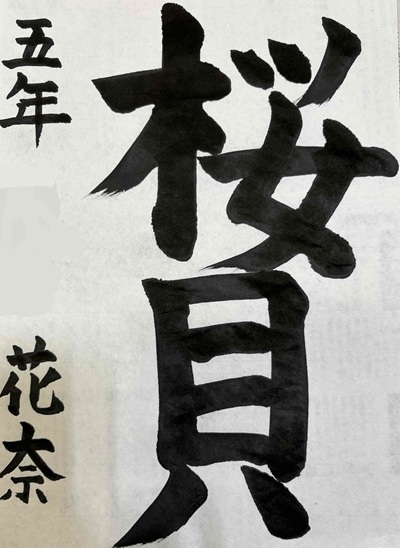 桜貝
五年
花奈